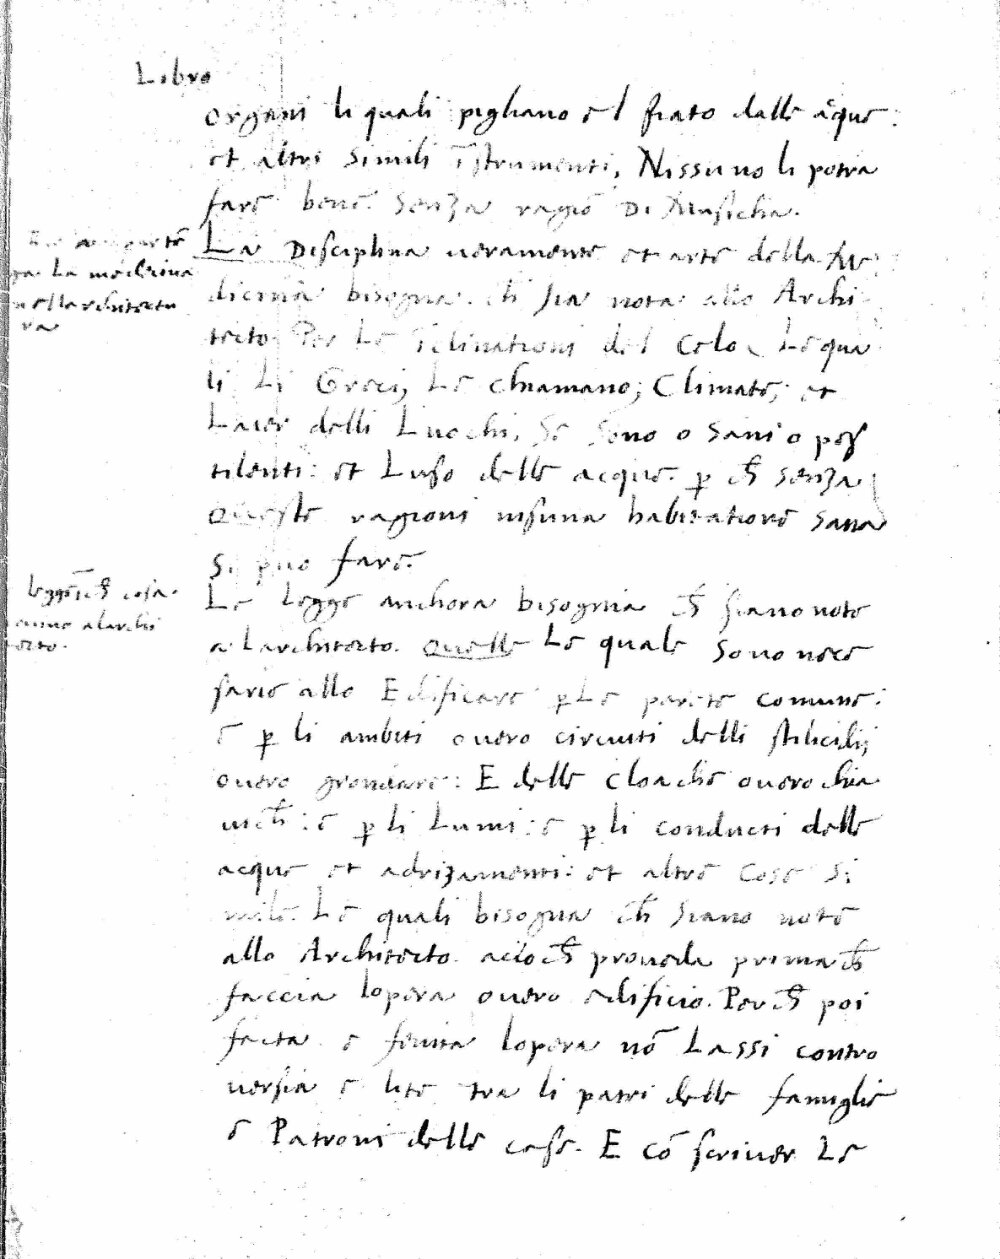 Libro
organi li quali pigliano el fiato dalle aque:
et altri simili īstrumenti, Nissuno li potra
fare bene. Senza ragiō Di Musicha.
La Disciplina veramente et arte della Me
dicina bisogna. ch̄ sia nota allo Archi
tecto Per Le īclinationi del Celo, Le qua
li Li Greci, Le chiamano; Climate; et
Laier delli Luochi, Se sono o sani o pes
tilenti: et Luso delle acque. p̄ ch̄ senza
Queste ragioni nisuna habitatione sana
Si puo fare.
Le legge anchora bisogna ch̄ siano note
a Larchitecto. Quelle Le quale sono nece
sarie allo Edificare p̄ Le parete comune:
e p̄ li ambiti overo circuiti delli stilicidij
overo grondare: E delle cloache overo chia
vich̄: e p̄ li Lumi: e p̄ li conducti delle
acque et adrizamenti: et altre cose si
mile. Le quali bisogna ch̄ siano note
allo Architecto. acioch̄ proveda prima ch̄
faccia lopera overo edificio. Per ch̄ poi
facta e fenita lopera nō Lassi contro
versia e lite tra li patri delle famiglie
e Patroni delle case. E cō scriver Le
La medicina
nellarchitectu
ra
cosa
alarchi
tecto.